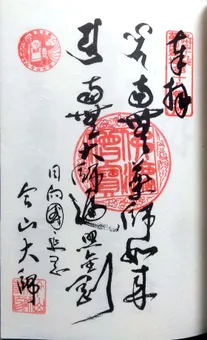 奉拝
南無薬師如来
南無大師遍照金剛
日向國延岡
今山大師